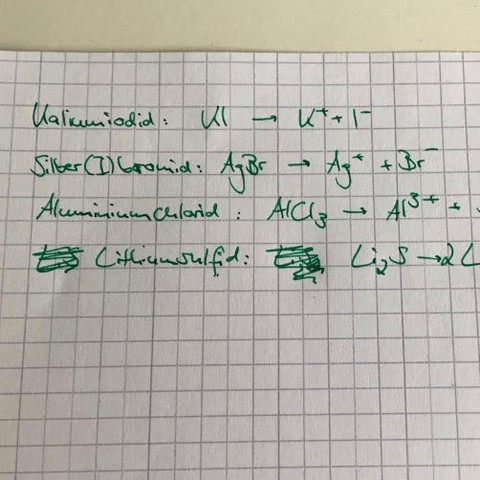 Kaliumiodid: KI → K⁺ + I⁻
Silber(I)bromid: AgBr → Ag⁺ + Br⁻
Aluminiumchlorid: AlCl₃ → Al³⁺ +
Lithiumsulfid: Li₂S → 2L